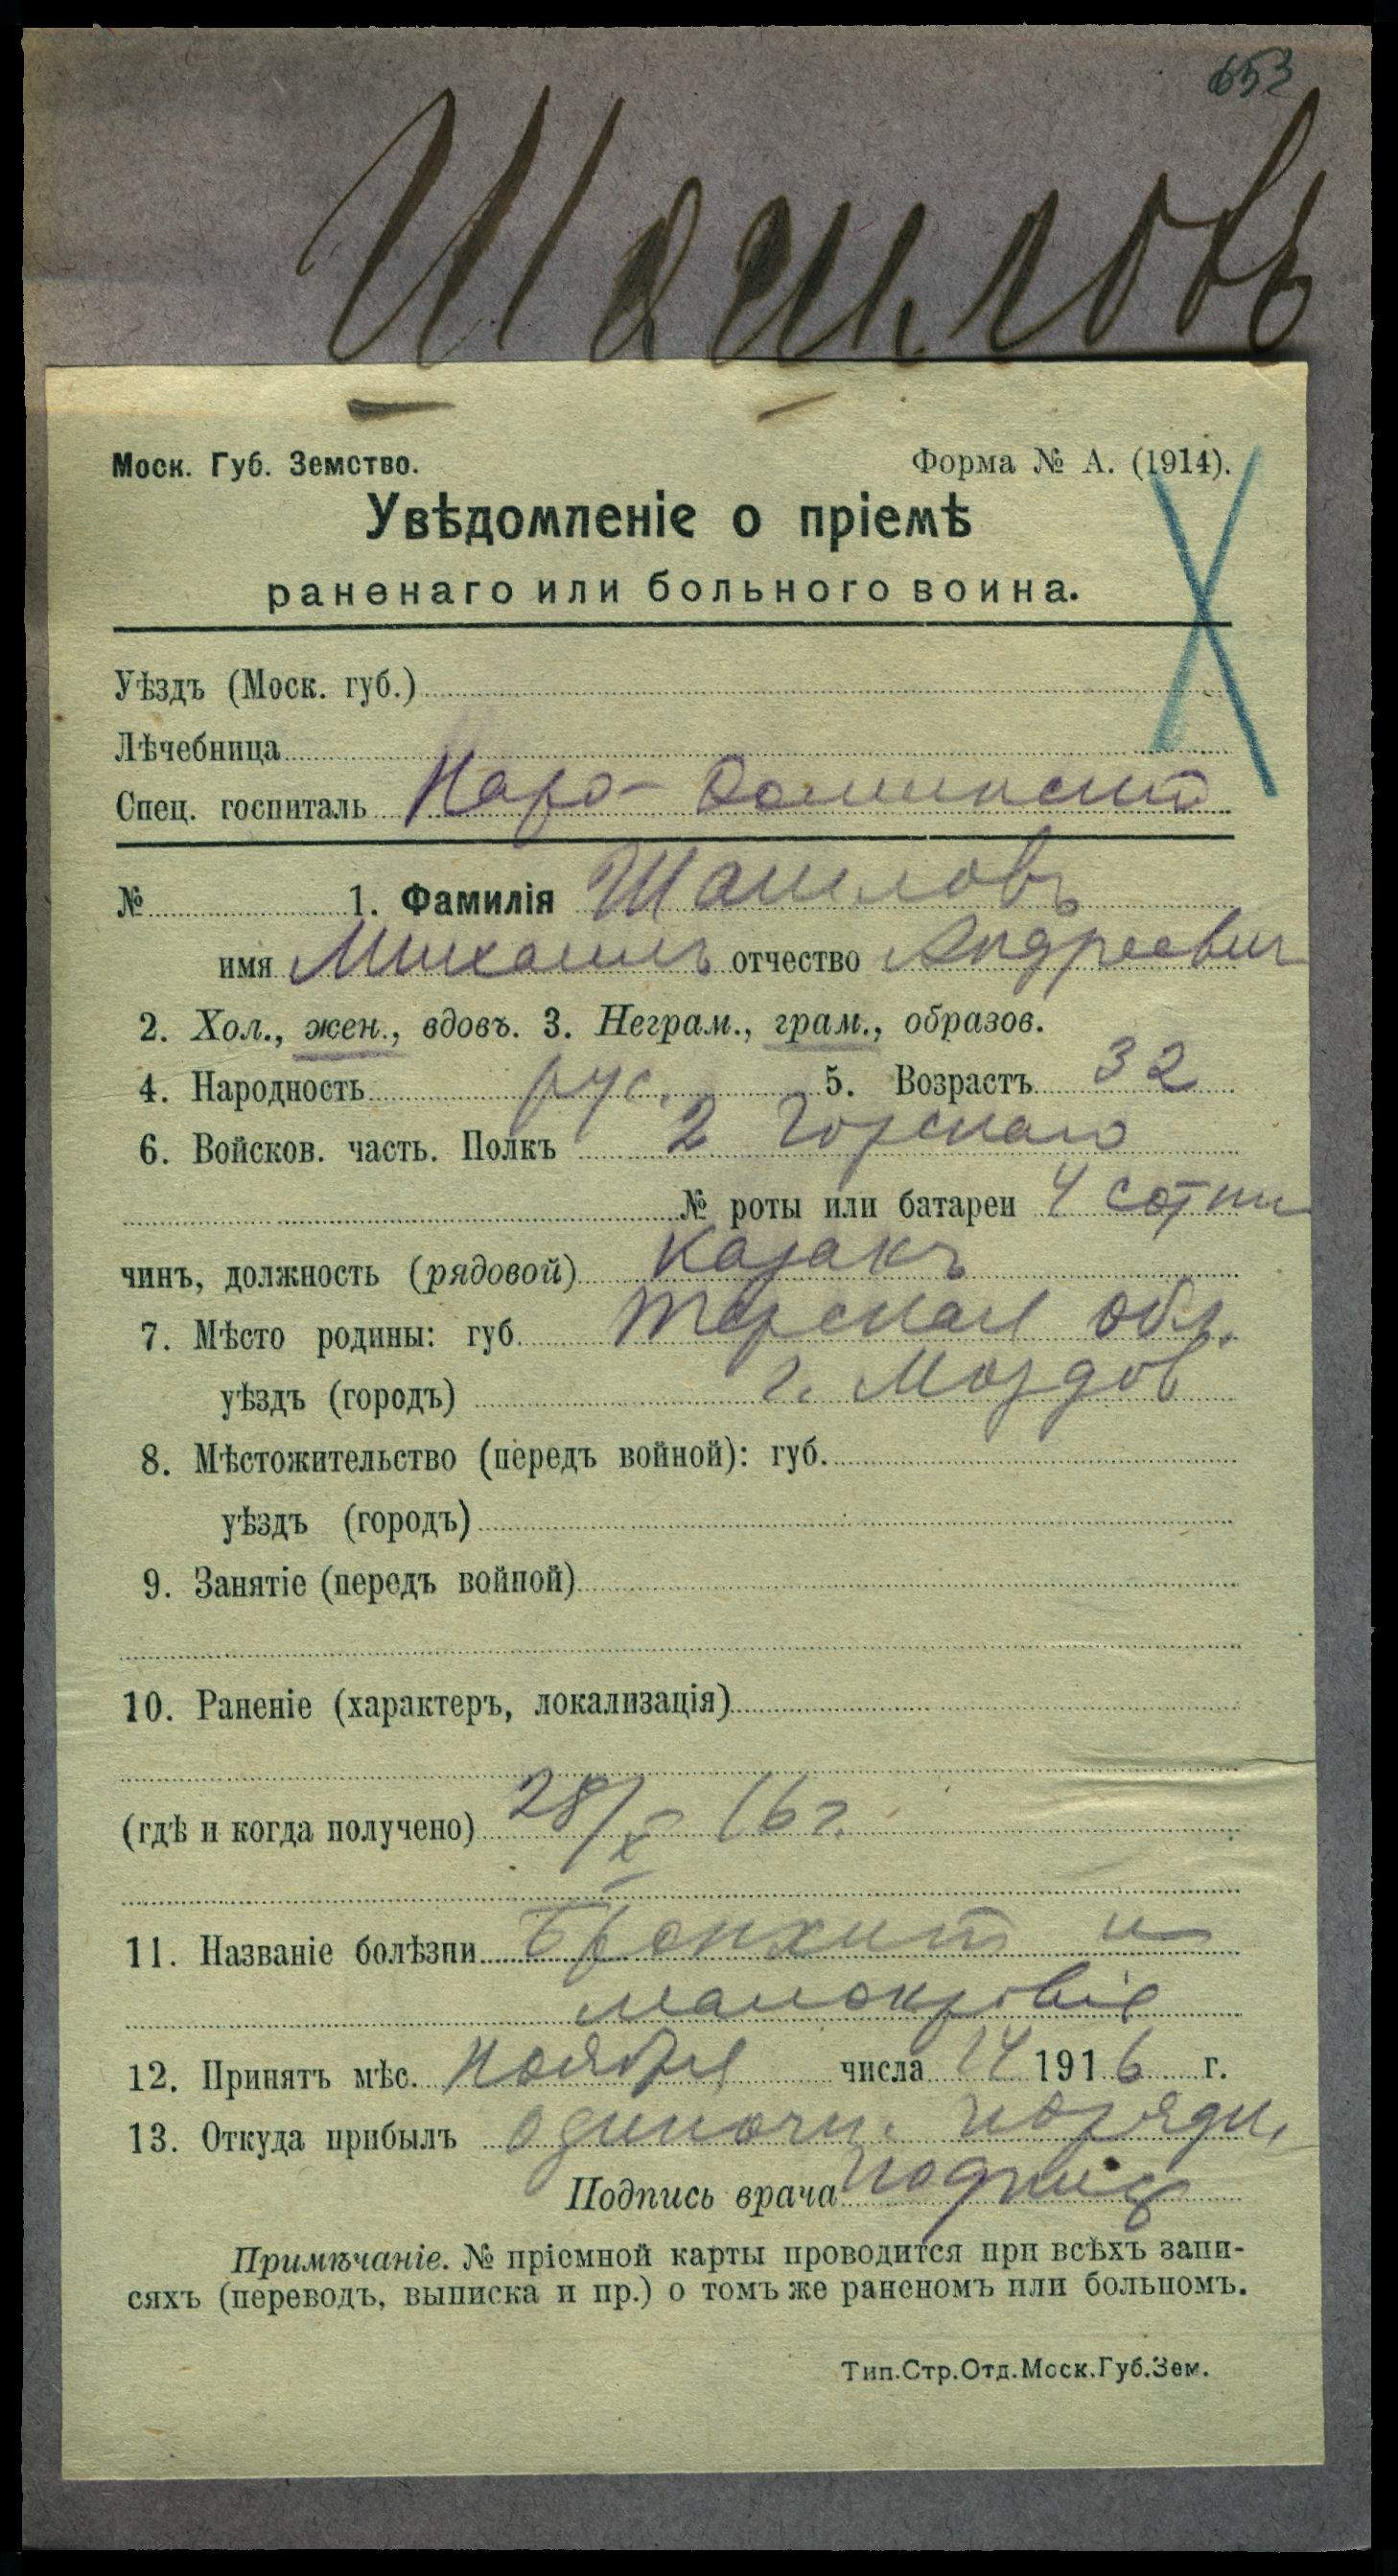 653
Шашловъ
Моск. Губ. Земство. Форма № А. (1914).
Увѣдомленіе о пріемѣ
раненаго или больного воина.
Уѣздъ (Моск. губ.)
Лѣчебница
Спец. госпиталь Наро-Фоминский
№ 1. Фамилія Шашловъ
имя Михаилъ отчество Андреевич
2. Хол., жен., вдовъ. 3. Неграм., грам., образов.
4. Народность рус. 5. Возрастъ 32
6. Войсков. часть. Полкъ 2 Горскаго
№ роты или батареи 4 сотни
чинъ, должность (рядовой) Казакъ
7. Мѣсто родины: губ. Терская обл.
уѣздъ (городъ) г. Моздов
8. Мѣстожительство (передъ войной): губ.
уѣздъ (городъ)
9. Занятіе (передъ войной)
10. Раненіе (характеръ, локализація)
(гдѣ и когда получено) 28/X 16 г.
11. Названіе болѣзни Бронхит и
малокровіе
12. Принятъ мѣс. Ноября числа 14 1916 г.
13. Откуда прибылъ одиночн. порядк.
Подпись врача
Примѣчаніе. № пріемной карты проводится при всѣхъ запи-
сяхъ (переводъ, выписка и пр.) о томъ же раненомъ или больномъ.
Тип.Стр.Отд.Моск.Губ.Зем.